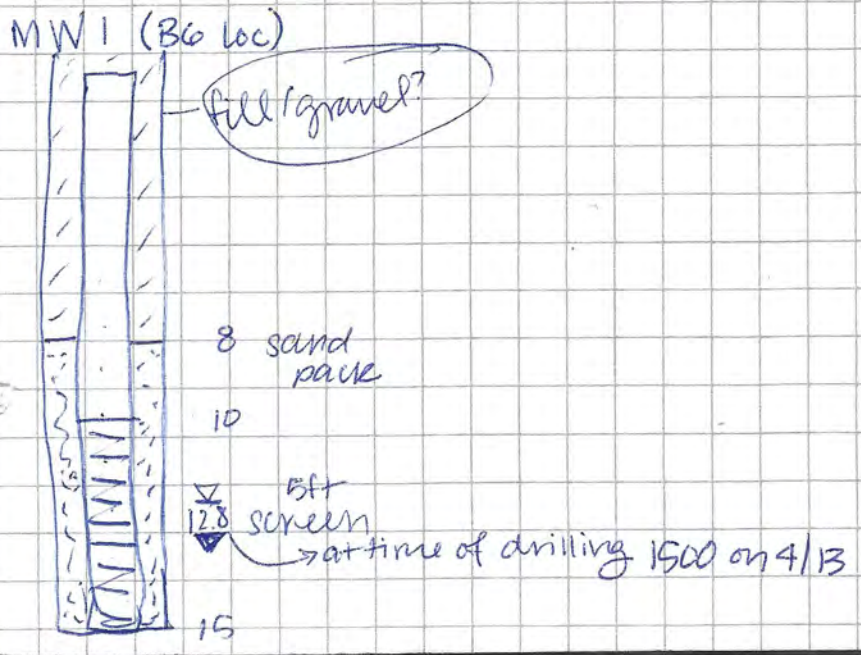 MW 1 (B6 loc)
fill/gravel?
8 sand
pack
10
5ft
12.8 screen
→ at time of drilling 1500 on 4/13
15